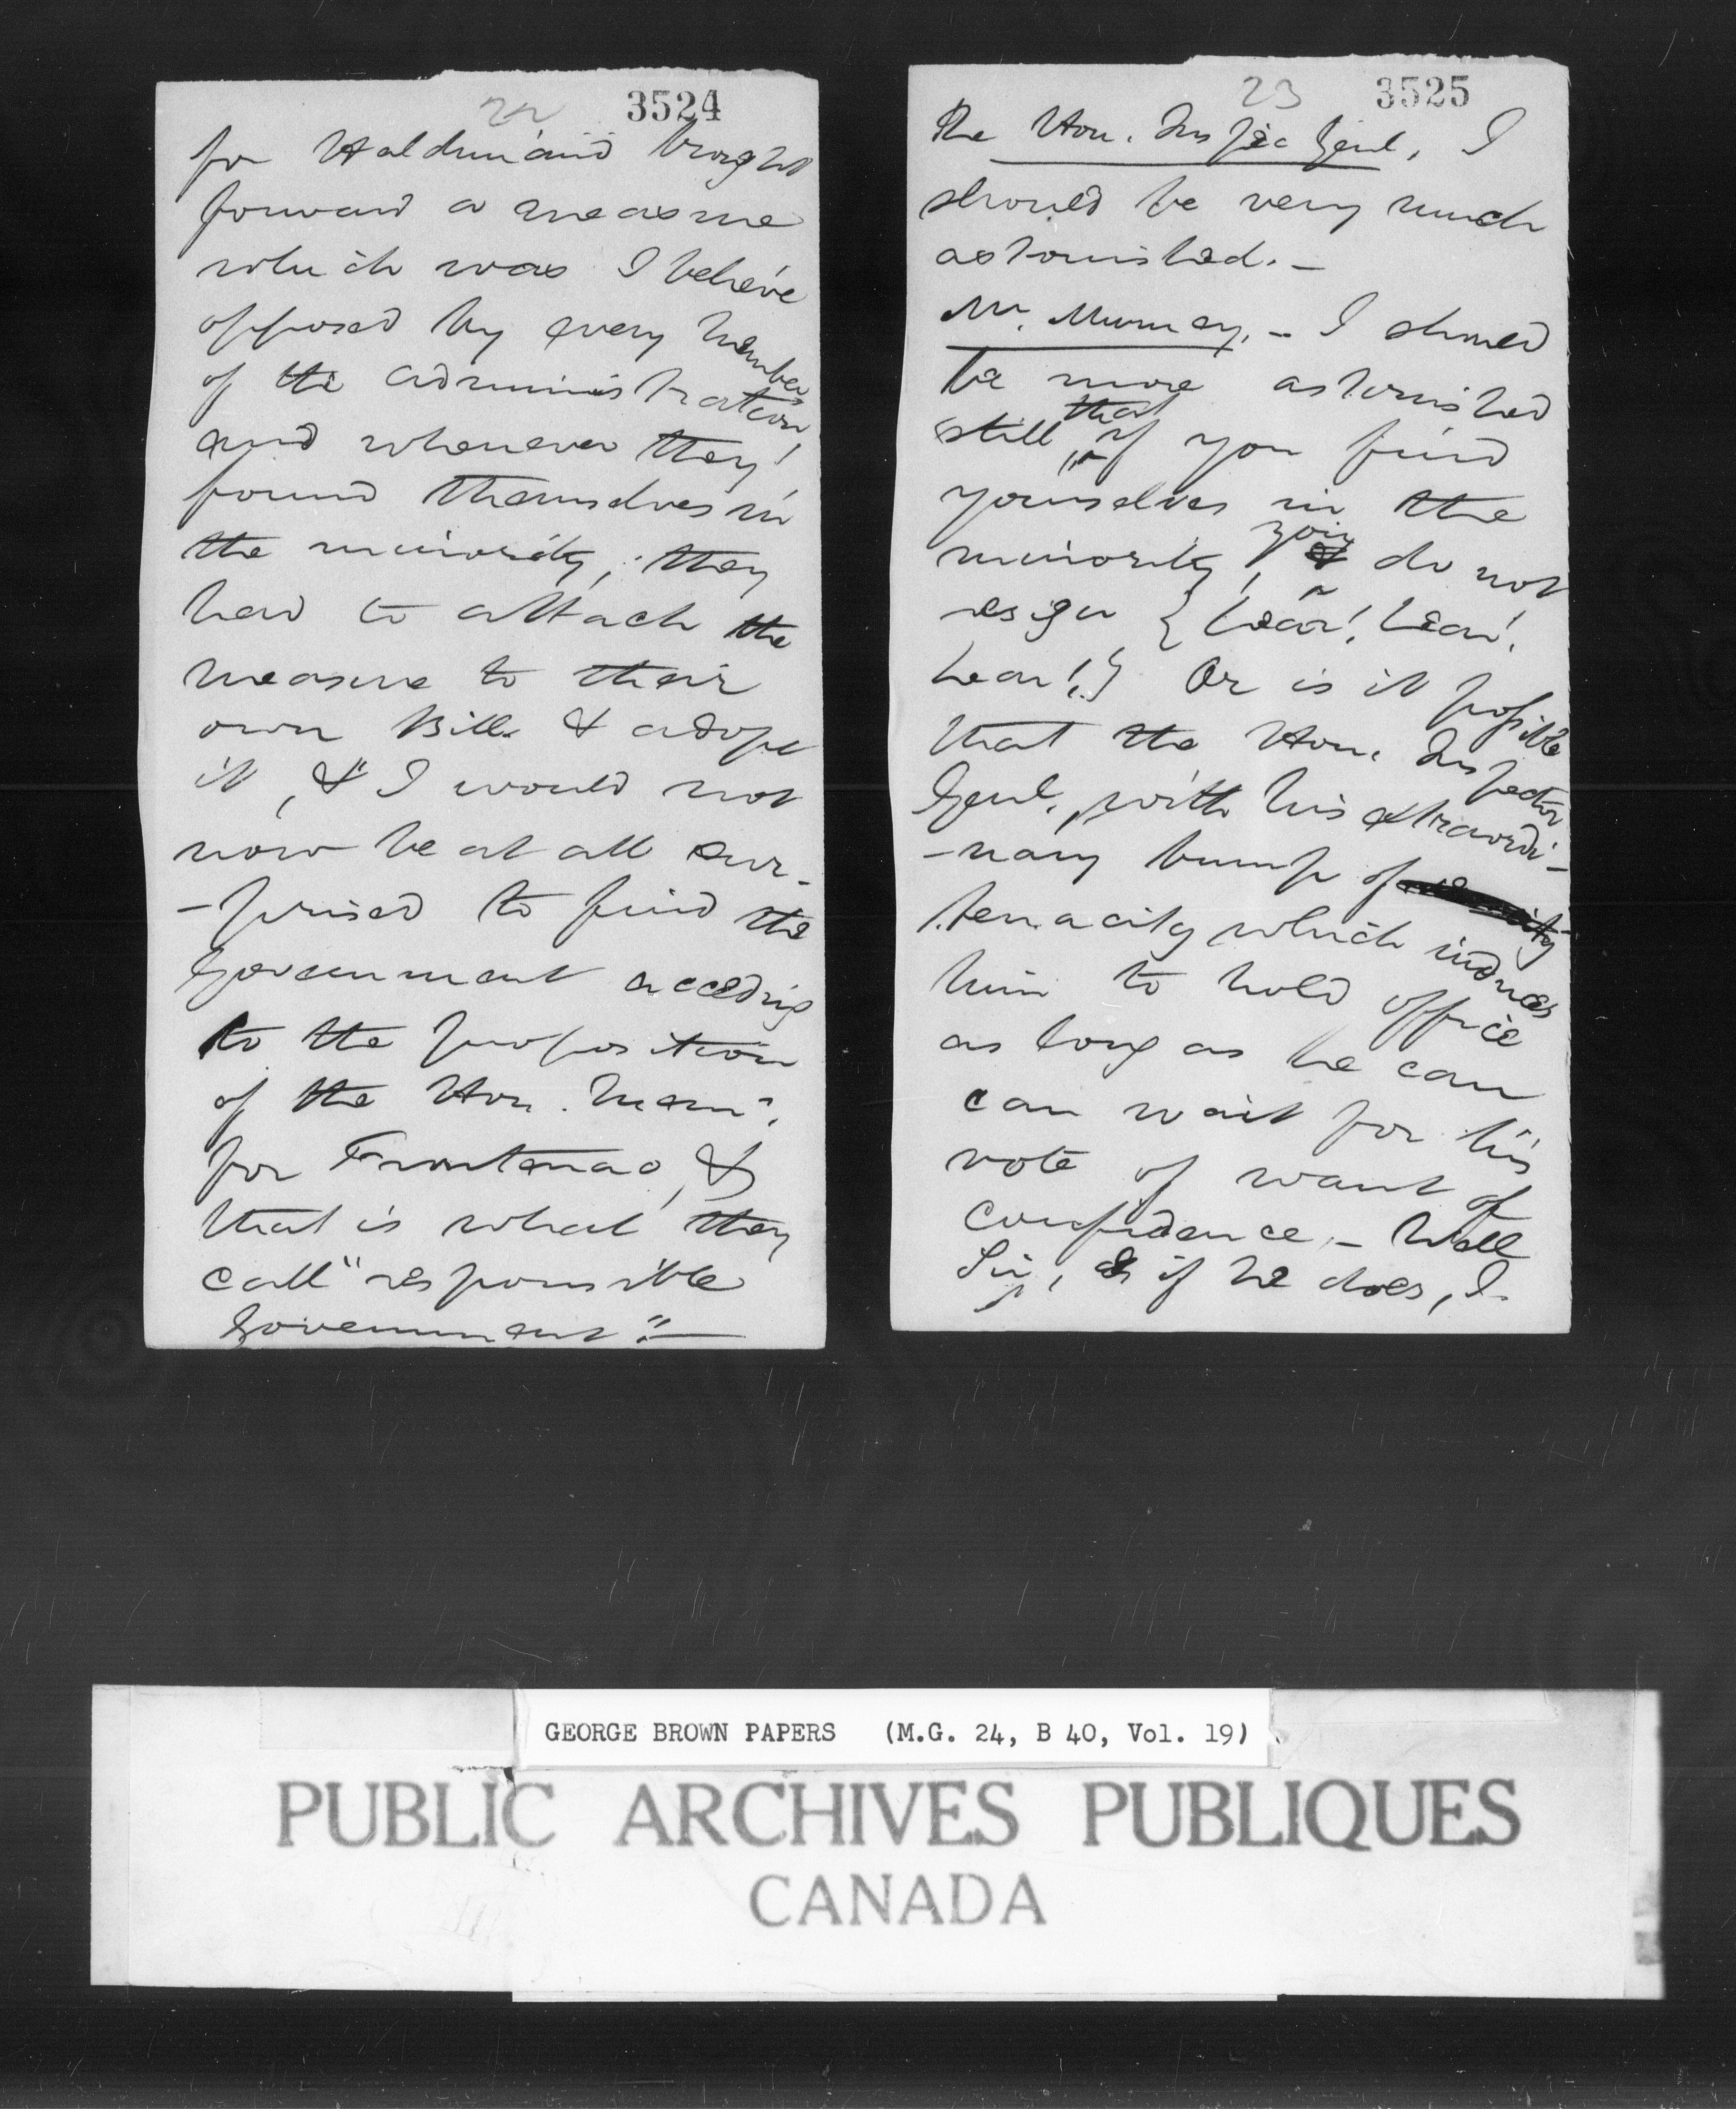 22 3524
for Haldimand brought
forward a measure
which was I believe
opposed by every member
of the administration,
and whenever they
found themselves in
the minority, they
had to attach the
measure to their
own Bill & adopt
it, & I would not
now be at all sur-
-prised to find the
Government acceding
to the proposition
of the Hon. Mem.
for Frontenac, &
that is what they
call "responsible
Government."—
23 3525
The Hon. Inspec Genl, I
should be very much
astonished.—
Mr. Murney.— I should
be more astonished
that
still, if you find
yourselves in the
you
minority, do not
resign {hear! hear!
hear!} Or is it possible
that the Hon. Inspector
Genl., with his extraordi-
-nary bump of
tenacity which induces
him to hold office
as long as he can
can wait for his
vote of want of
confidence.— Well
Sir, if he does, I
GEORGE BROWN PAPERS (M.G. 24, B 40, Vol. 19)
PUBLIC ARCHIVES PUBLIQUES
CANADA